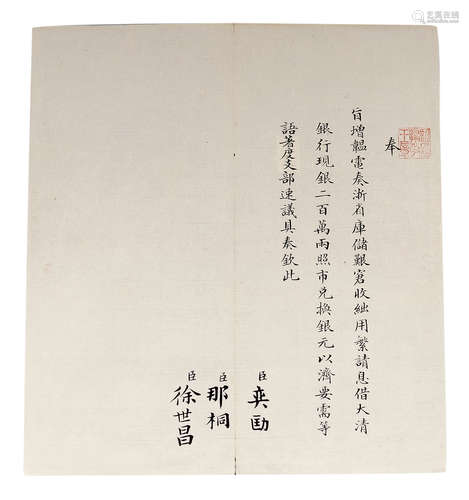 奉
旨增韞電奏浙省庫儲艱窘收絀用繁請息借大清
銀行現銀二百萬兩照市兌換銀元以濟要需等
語著度支部速議具奏欽此
臣奕劻
臣那桐
臣徐世昌